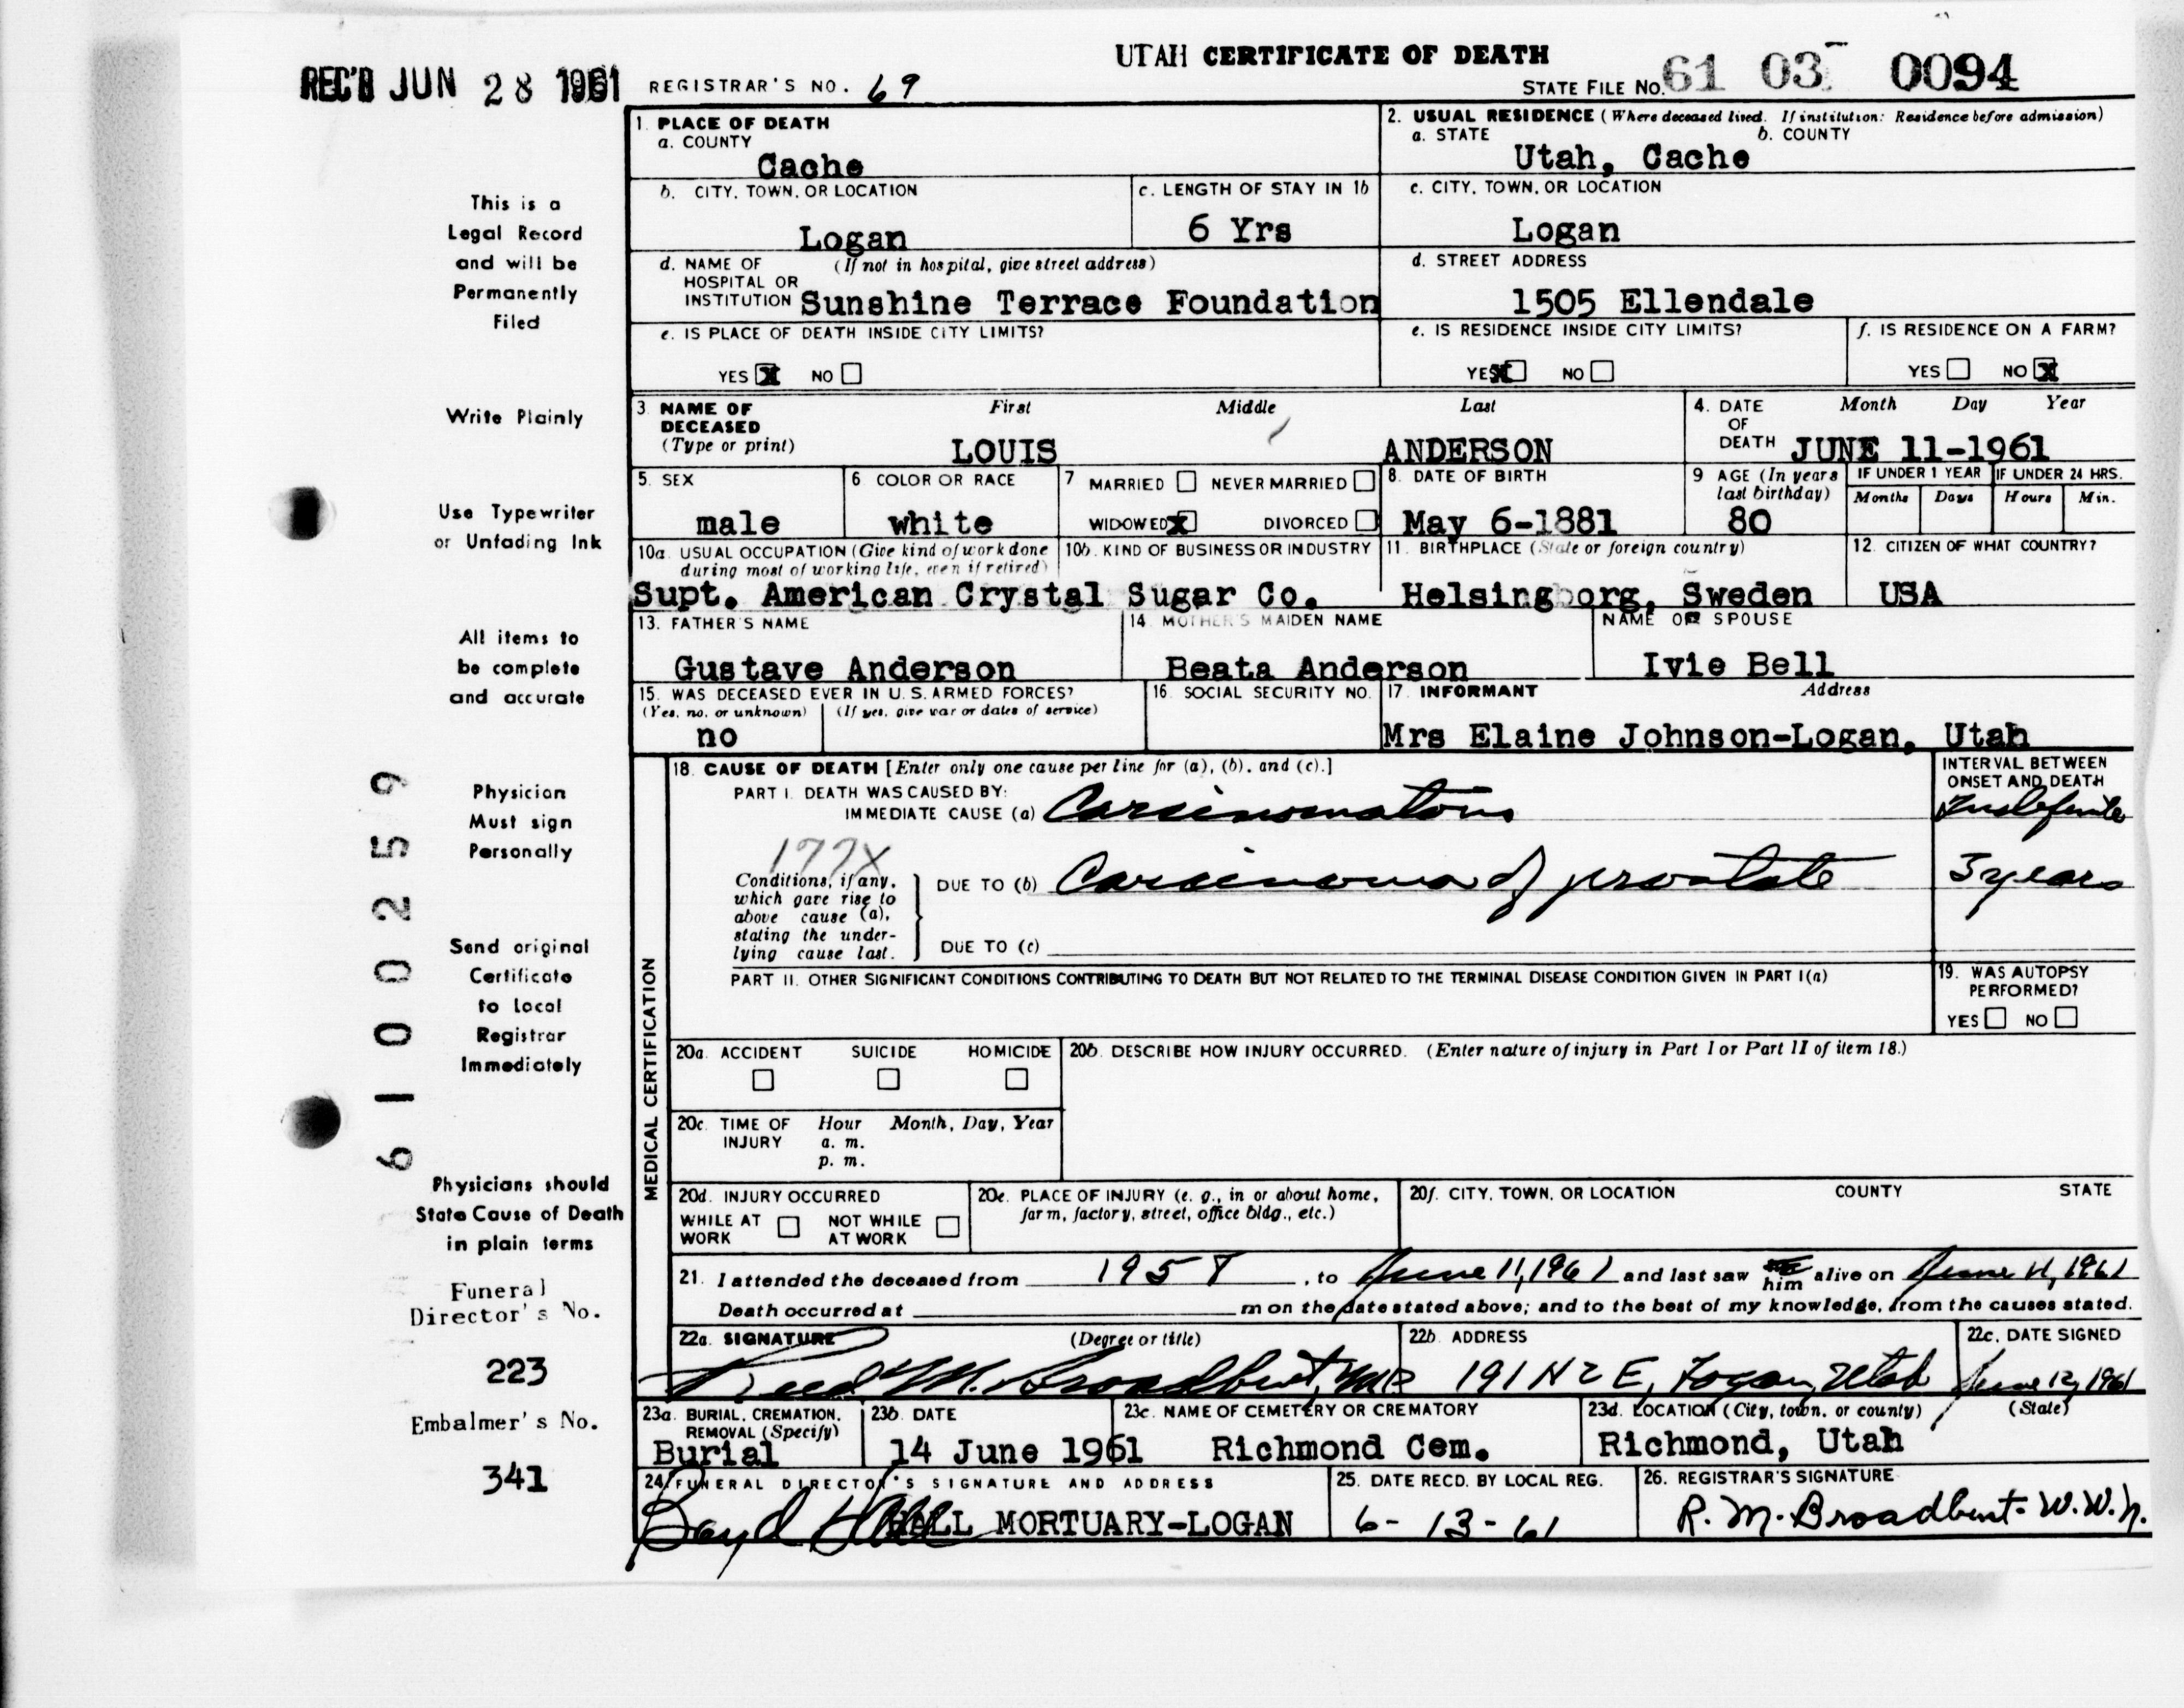 UTAH CERTIFICATE OF DEATH
REC'D JUN 28 1961 REGISTRAR'S NO. 69 STATE FILE NO. 61 03 0094
1. PLACE OF DEATH
a. COUNTY
Cache
2. USUAL RESIDENCE (Where deceased lived. If institution: Residence before admission)
a. STATE b. COUNTY
Utah, Cache
b. CITY, TOWN, OR LOCATION
Logan
c. LENGTH OF STAY IN 1b
6 Yrs
c. CITY, TOWN, OR LOCATION
Logan
d. NAME OF (If not in hospital, give street address)
HOSPITAL OR
INSTITUTION Sunshine Terrace Foundation
d. STREET ADDRESS
1505 Ellendale
e. IS PLACE OF DEATH INSIDE CITY LIMITS?
YES X NO
e. IS RESIDENCE INSIDE CITY LIMITS?
YES X NO
f. IS RESIDENCE ON A FARM?
YES NO X
3. NAME OF First Middle Last
DECEASED
(Type or print) LOUIS ANDERSON
4. DATE Month Day Year
OF
DEATH JUNE 11-1961
5. SEX
male
6 COLOR OR RACE
white
7 MARRIED NEVER MARRIED
WIDOWED X DIVORCED
8. DATE OF BIRTH
May 6-1881
9 AGE (In years
last birthday)
80
IF UNDER 1 YEAR IF UNDER 24 HRS.
Months Days Hours Min.
10a. USUAL OCCUPATION (Give kind of work done
during most of working life, even if retired)
10b. KIND OF BUSINESS OR INDUSTRY
Supt. American Crystal Sugar Co.
11. BIRTHPLACE (State or foreign country)
Helsingborg, Sweden
12. CITIZEN OF WHAT COUNTRY?
USA
13. FATHER'S NAME
Gustave Anderson
14. MOTHER'S MAIDEN NAME
Beata Anderson
NAME OR SPOUSE
Ivie Bell
15. WAS DECEASED EVER IN U.S. ARMED FORCES?
(Yes, no, or unknown) (If yes, give war or dates of service)
no
16. SOCIAL SECURITY NO.
17. INFORMANT Address
Mrs Elaine Johnson-Logan, Utah
MEDICAL CERTIFICATION
18. CAUSE OF DEATH [Enter only one cause per line for (a), (b), and (c).]
PART I. DEATH WAS CAUSED BY:
IMMEDIATE CAUSE (a) Carcinomatous
INTERVAL BETWEEN
ONSET AND DEATH
Indefinite
177X
Conditions, if any,
which gave rise to
above cause (a),
stating the under-
lying cause last.
DUE TO (b) Carcinoma of prostate 3 years
DUE TO (c)
PART II. OTHER SIGNIFICANT CONDITIONS CONTRIBUTING TO DEATH BUT NOT RELATED TO THE TERMINAL DISEASE CONDITION GIVEN IN PART I(a)
19. WAS AUTOPSY
PERFORMED?
YES NO
20a. ACCIDENT SUICIDE HOMICIDE
20b. DESCRIBE HOW INJURY OCCURRED. (Enter nature of injury in Part I or Part II of item 18.)
20c. TIME OF Hour Month, Day, Year
INJURY a. m.
p. m.
20d. INJURY OCCURRED
WHILE AT NOT WHILE
WORK AT WORK
20e. PLACE OF INJURY (e. g., in or about home,
farm, factory, street, office bldg., etc.)
20f. CITY, TOWN, OR LOCATION COUNTY STATE
21. I attended the deceased from 1958, to June 11, 1961 and last saw him alive on June 11, 1961
Death occurred at m on the date stated above; and to the best of my knowledge, from the causes stated.
22a. SIGNATURE (Degree or title)
Reed M. Broadbent, MD
22b. ADDRESS
191 N 2 E, Logan, Utah
22c. DATE SIGNED
June 12, 1961
23a. BURIAL, CREMATION,
REMOVAL (Specify)
Burial
23b. DATE
14 June 1961
23c. NAME OF CEMETERY OR CREMATORY
Richmond Cem.
23d. LOCATION (City, town, or county) (State)
Richmond, Utah
24. FUNERAL DIRECTOR'S SIGNATURE AND ADDRESS
Boyd Hall HALL MORTUARY-LOGAN
25. DATE RECD. BY LOCAL REG.
6-13-61
26. REGISTRAR'S SIGNATURE
R. M. Broadbent - W.W.N.
This is a
Legal Record
and will be
Permanently
Filed
Write Plainly
Use Typewriter
or Unfading Ink
All items to
be complete
and accurate
Physician
Must sign
Personally
Send original
Certificate
to Local
Registrar
Immediately
Physicians should
State Cause of Death
in plain terms
Funeral
Director's No.
223
Embalmer's No.
341
6100259